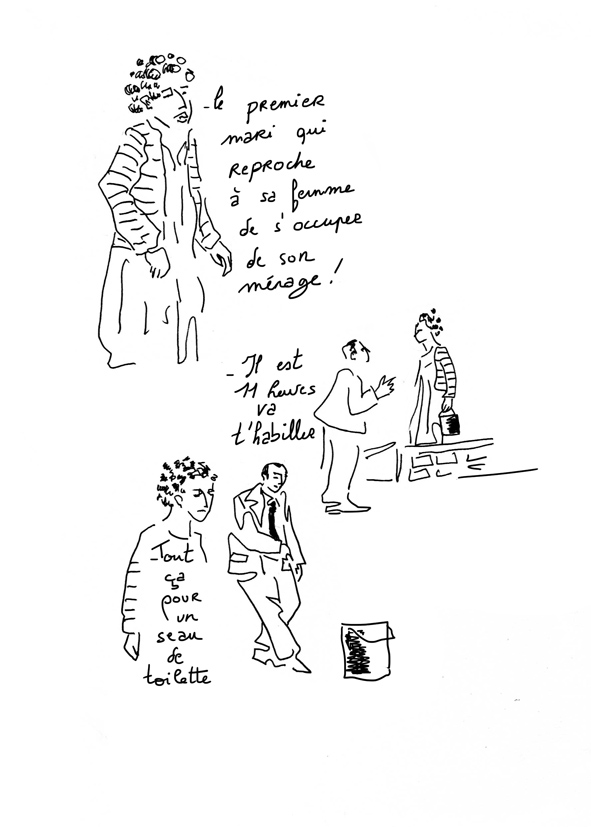 - le premier
mari qui
reproche
à sa femme
de s'occuper
de son
ménage !
- Il est
11 heures
va
t'habiller
- Tout
ça
pour
un
seau
de
toilette